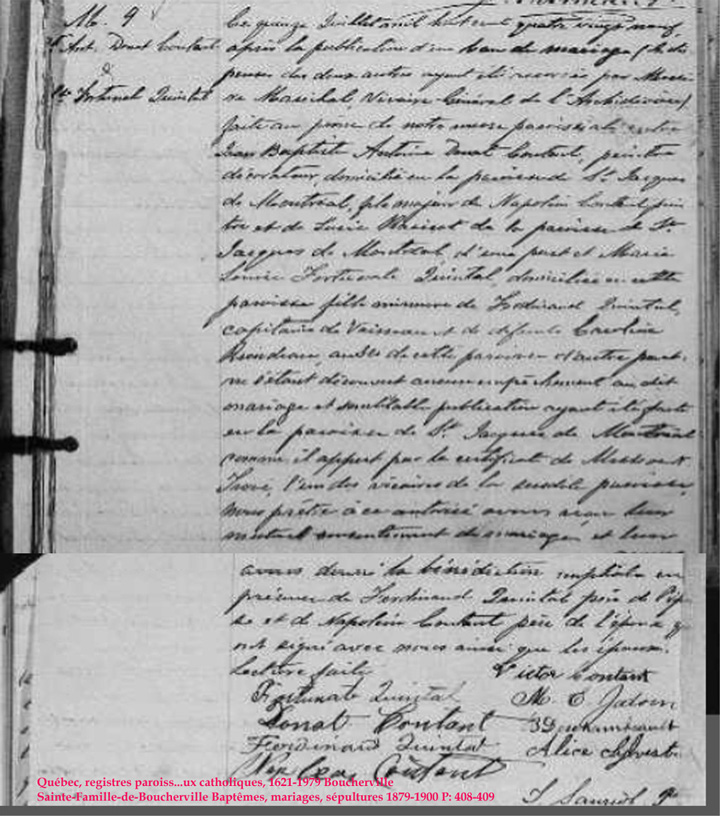 M. 9
Ant. Donat Coutant
&
Fortunat Quintal
Le quinze Juillet mil huit cent quatre vingt neuf,
après la publication d'un ban de mariage (la dis
pense des deux autres ayant été accordée par Messi
re Maréchal, Vicaire Général de l'Archidiocèse)
faite au prône de notre messe paroissiale entre
Jean Baptiste Antoine Donat Coutant, peintre
décorateur, domicilié en la paroisse de St Jacques
de Montréal, fils majeur de Napoléon Coutant pein
tre et de Lucie de la paroisse de St
Jacques de Montréal, d'une part et Marie
Louise Fortunate Quintal, domiciliée en cette
paroisse fille mineure de Ferdinand Quintal,
capitaine de Vaisseau et de défunte Caroline
Riendeau, aussi de cette paroisse d'autre part.
ne s'étant découvert aucun empêchement au dit
mariage et semblable publication ayant été faite
en la paroisse de St Jacques de Montréal
comme il appert par le certificat de Messire
l'un des vicaires de la susdite paroisse,
nous prêtre à ce autorisé avons reçu leur
mutuel consentement de mariage et leur
avons donné la bénédiction nuptiale en
présence de Ferdinand Quintal père de l'épou
se et de Napoléon Coutant père de l'époux q
ont signé avec nous ainsi que les époux.
Lecture faite
Victor Contant
Fortunate Quintal
M. E. Jalom
Donat Contant
Ferdinand Quintal
Alice
Napoléon Contant
Québec, registres paroiss...ux catholiques, 1621-1979 Boucherville
Sainte-Famille-de-Boucherville Baptêmes, mariages, sépultures 1879-1900 P: 408-409